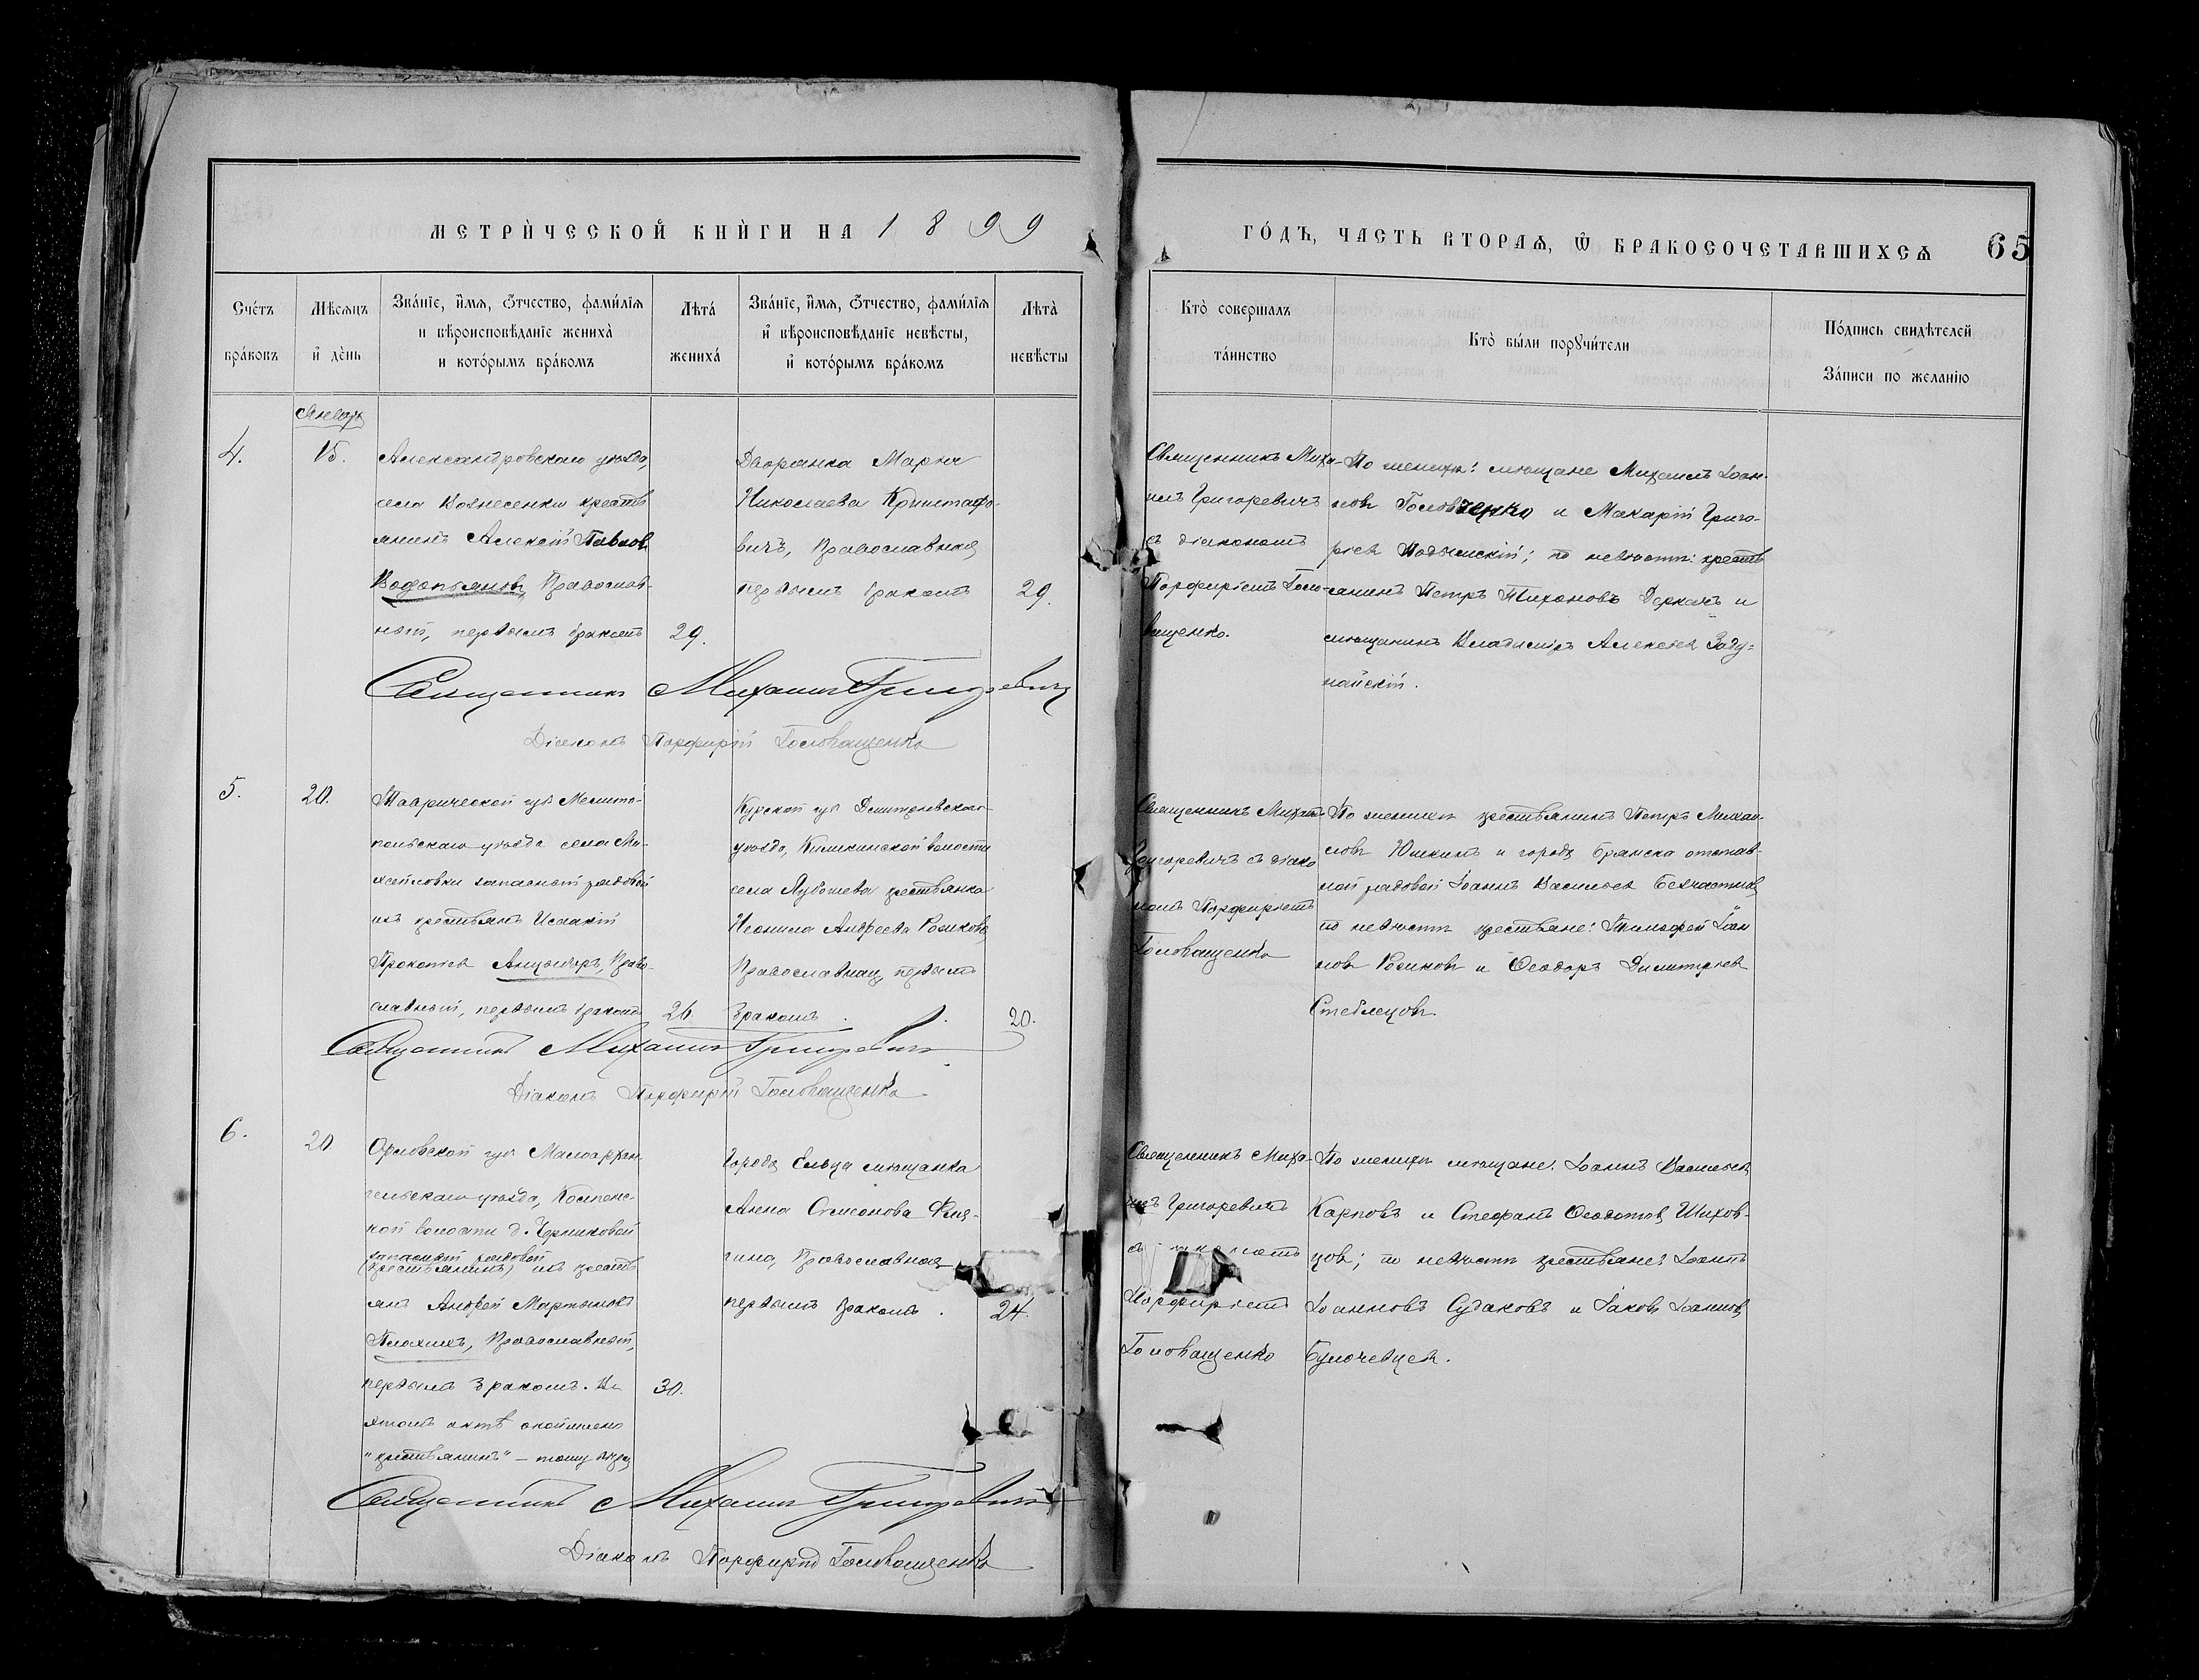 МЕТРИ́ЧЕСКОЙ КНИ́ГИ НА 1899
ГО́ДЪ, ЧАСТЬ ВТОРАѦ, Ѿ БРАКОСОЧЕТАВШИХСѦ 65
Счетъ бра́ковъ
Мѣсѧцъ и де́нь
Зва́нїе, и́мѧ, ѻ́тчество, фами́лїѧ
и вѣроисповѣданїе жениха̀
и кото́рымъ бра́комъ
Лѣта́ жениха́
Зва́нїе, и́мѧ, ѻ́тчество, фами́лїѧ
и́ вѣроисповѣданїе невѣсты,
и́ кото́рымъ бра́комъ
Лѣта̀ невѣсты
Кто̀ совершалъ
та́инство
Кто̀ бы́ли порꙋчи́тели
По́дпись свидѣтелей
За́писи по желанїю
4.
15.
Александровскаго уѣзда,
села Вознесенки кресть
янинъ Алексѣй Павлов
Водопьяновъ, Православ-
ный, первымъ бракомъ
29.
Дворянка Марія
Николаева Криштафо-
вичъ, Православная
первымъ бракомъ
29.
Священникъ Миха-
илъ Григоревичъ
съ діакономъ
Порфиріемъ Голо-
ващенко.
По женихѣ: мѣщане Михаилъ Іоан-
новъ Головченко и Макарій Григо-
ріев; по невѣстѣ: кресть
янинъ Петръ Тихоновъ Деркачъ и
мѣщанинъ Владиміръ Алексѣев Заду-
найскій.
Священникъ Михаилъ Григоревичъ
Діаконъ Порфирій Головащенко
5.
20.
Таврической губ Мелито-
польскаго уѣзда села Ми-
хайловки запасный рядовой
изъ крестьянъ Исаакій
Прокопьев Анцыпоръ, Право-
славный, первымъ бракомъ
26.
Курской губ Дмитріевскаго
уѣзда, волости
села крестьянка
Неонила Андреева Росикова
Православная, первымъ
бракомъ.
20.
Священникъ Михаилъ
Григоревичъ съ діако
номъ Порфиріемъ
Головащенко
По женихѣ крестьянинъ Петръ Михаи-
ловъ Юшкинъ и города Брянска отстав-
ной рядовой Іоаннъ Васильев Безчастнов
по невѣстѣ крестьяне: Тимофей Іоан
новъ Росиковъ и Ѳеодоръ Димитріев
Стеблецовъ.
Священникъ Михаилъ Григоревичъ
Діаконъ Порфирій Головащенко
6.
20
Орловской губ Малоархан
гельскаго уѣзда,
кой волости д.
запасный рядовой
(крестьянинъ) изъ кресть
янъ Андрей Мартыновъ
Плохихъ, Православный,
первымъ бракомъ. Въ
этомъ актѣ
"крестьянинъ" –
30.
Города Ельца мѣщанка
Анна Симеонова
гина, Православная
первымъ бракомъ.
24.
Священникъ Миха-
илъ Григоревичъ
Порфиріемъ
Головащенко
По женихѣ мѣщане: Іоаннъ Васильев
Карповъ и Стефанъ Ѳеодотов Шихов-
цов; по невѣстѣ крестьяне: Іоаннъ
Іоанновъ Судаковъ и Іаковъ Іоаннов

Священникъ Михаилъ Григоревичъ
Діаконъ Порфирій Головащенко